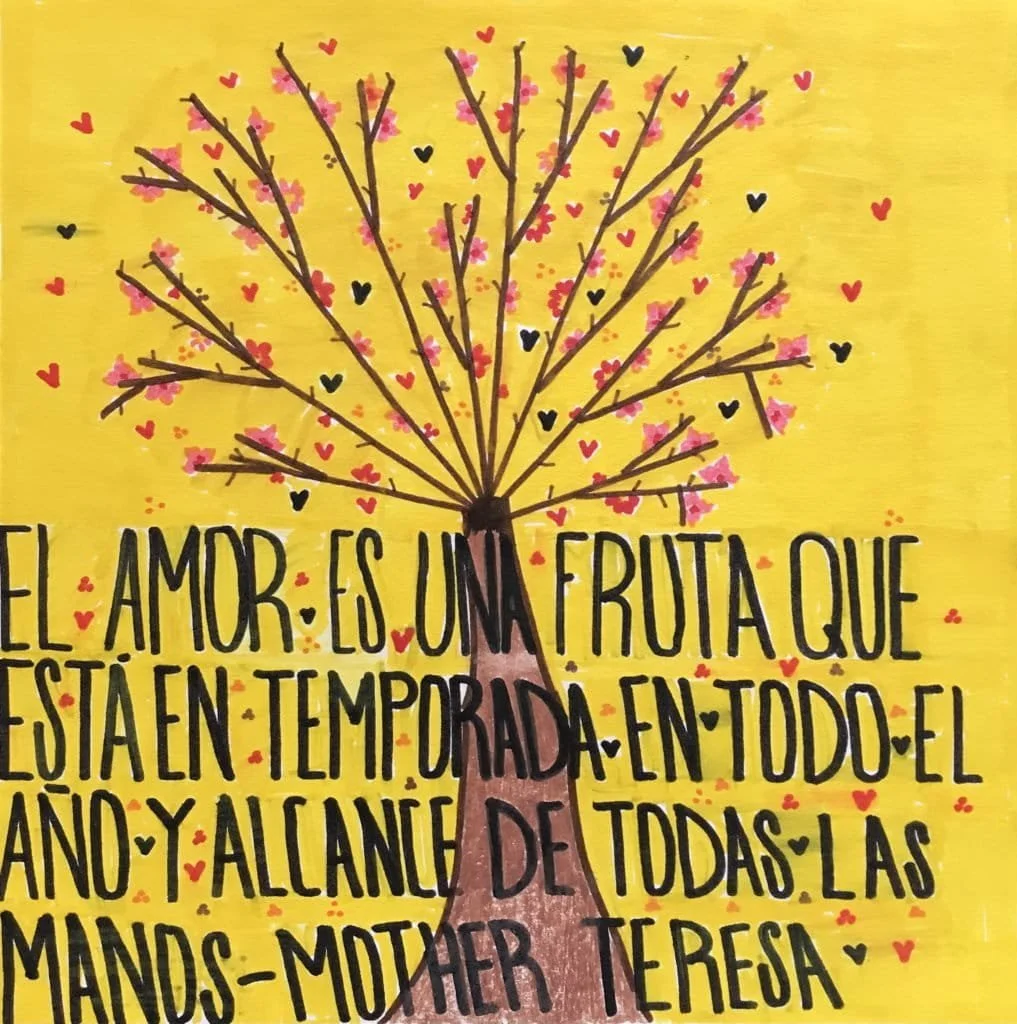 EL AMOR ES UNA FRUTA QUE
ESTÁ EN TEMPORADA EN TODO EL
AÑO Y ALCANCE DE TODAS LAS
MANOS-MOTHER TERESA